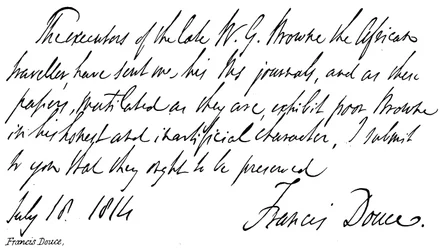 The executors of the late W. G. Browne the African
traveller, have sent me his Ms journals, and as these
papers, mutilated as they are, exhibit poor Browne
in his honest and inartificial character, I submit
to you that they ought to be preserved
July 18. 1814
Francis Douce.
Francis Douce,